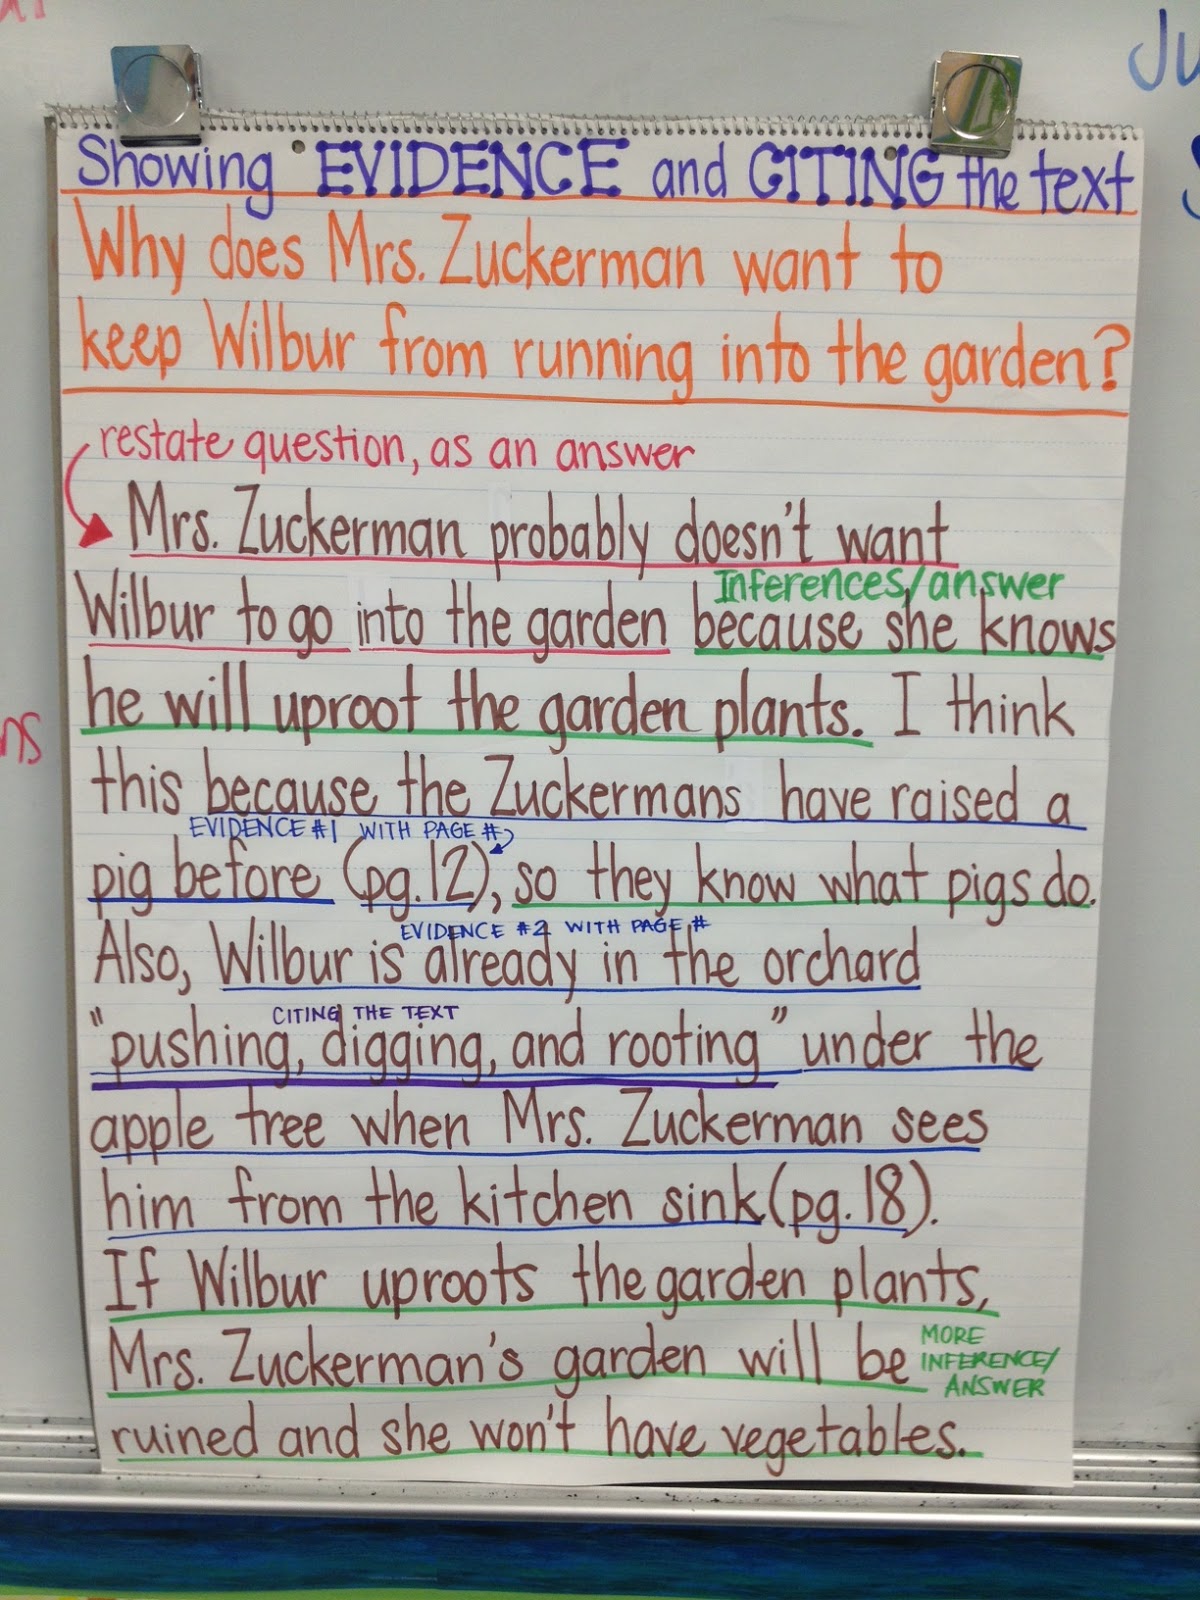 Showing EVIDENCE and CITING the text
Why does Mrs. Zuckerman want to
keep Wilbur from running into the garden?
restate question, as an answer
Mrs. Zuckerman probably doesn't want
Inferences/answer
Wilbur to go into the garden because she knows
he will uproot the garden plants. I think
this because the Zuckermans have raised a
EVIDENCE #1 WITH PAGE #
pig before (pg.12), so they know what pigs do.
EVIDENCE #2 WITH PAGE #
Also, Wilbur is already in the orchard
CITING THE TEXT
"pushing, digging, and rooting" under the
apple tree when Mrs. Zuckerman sees
him from the kitchen sink (pg.18).
If Wilbur uproots the garden plants,
Mrs. Zuckerman's garden will be
MORE
INFERENCE/
ANSWER
ruined and she won't have vegetables.